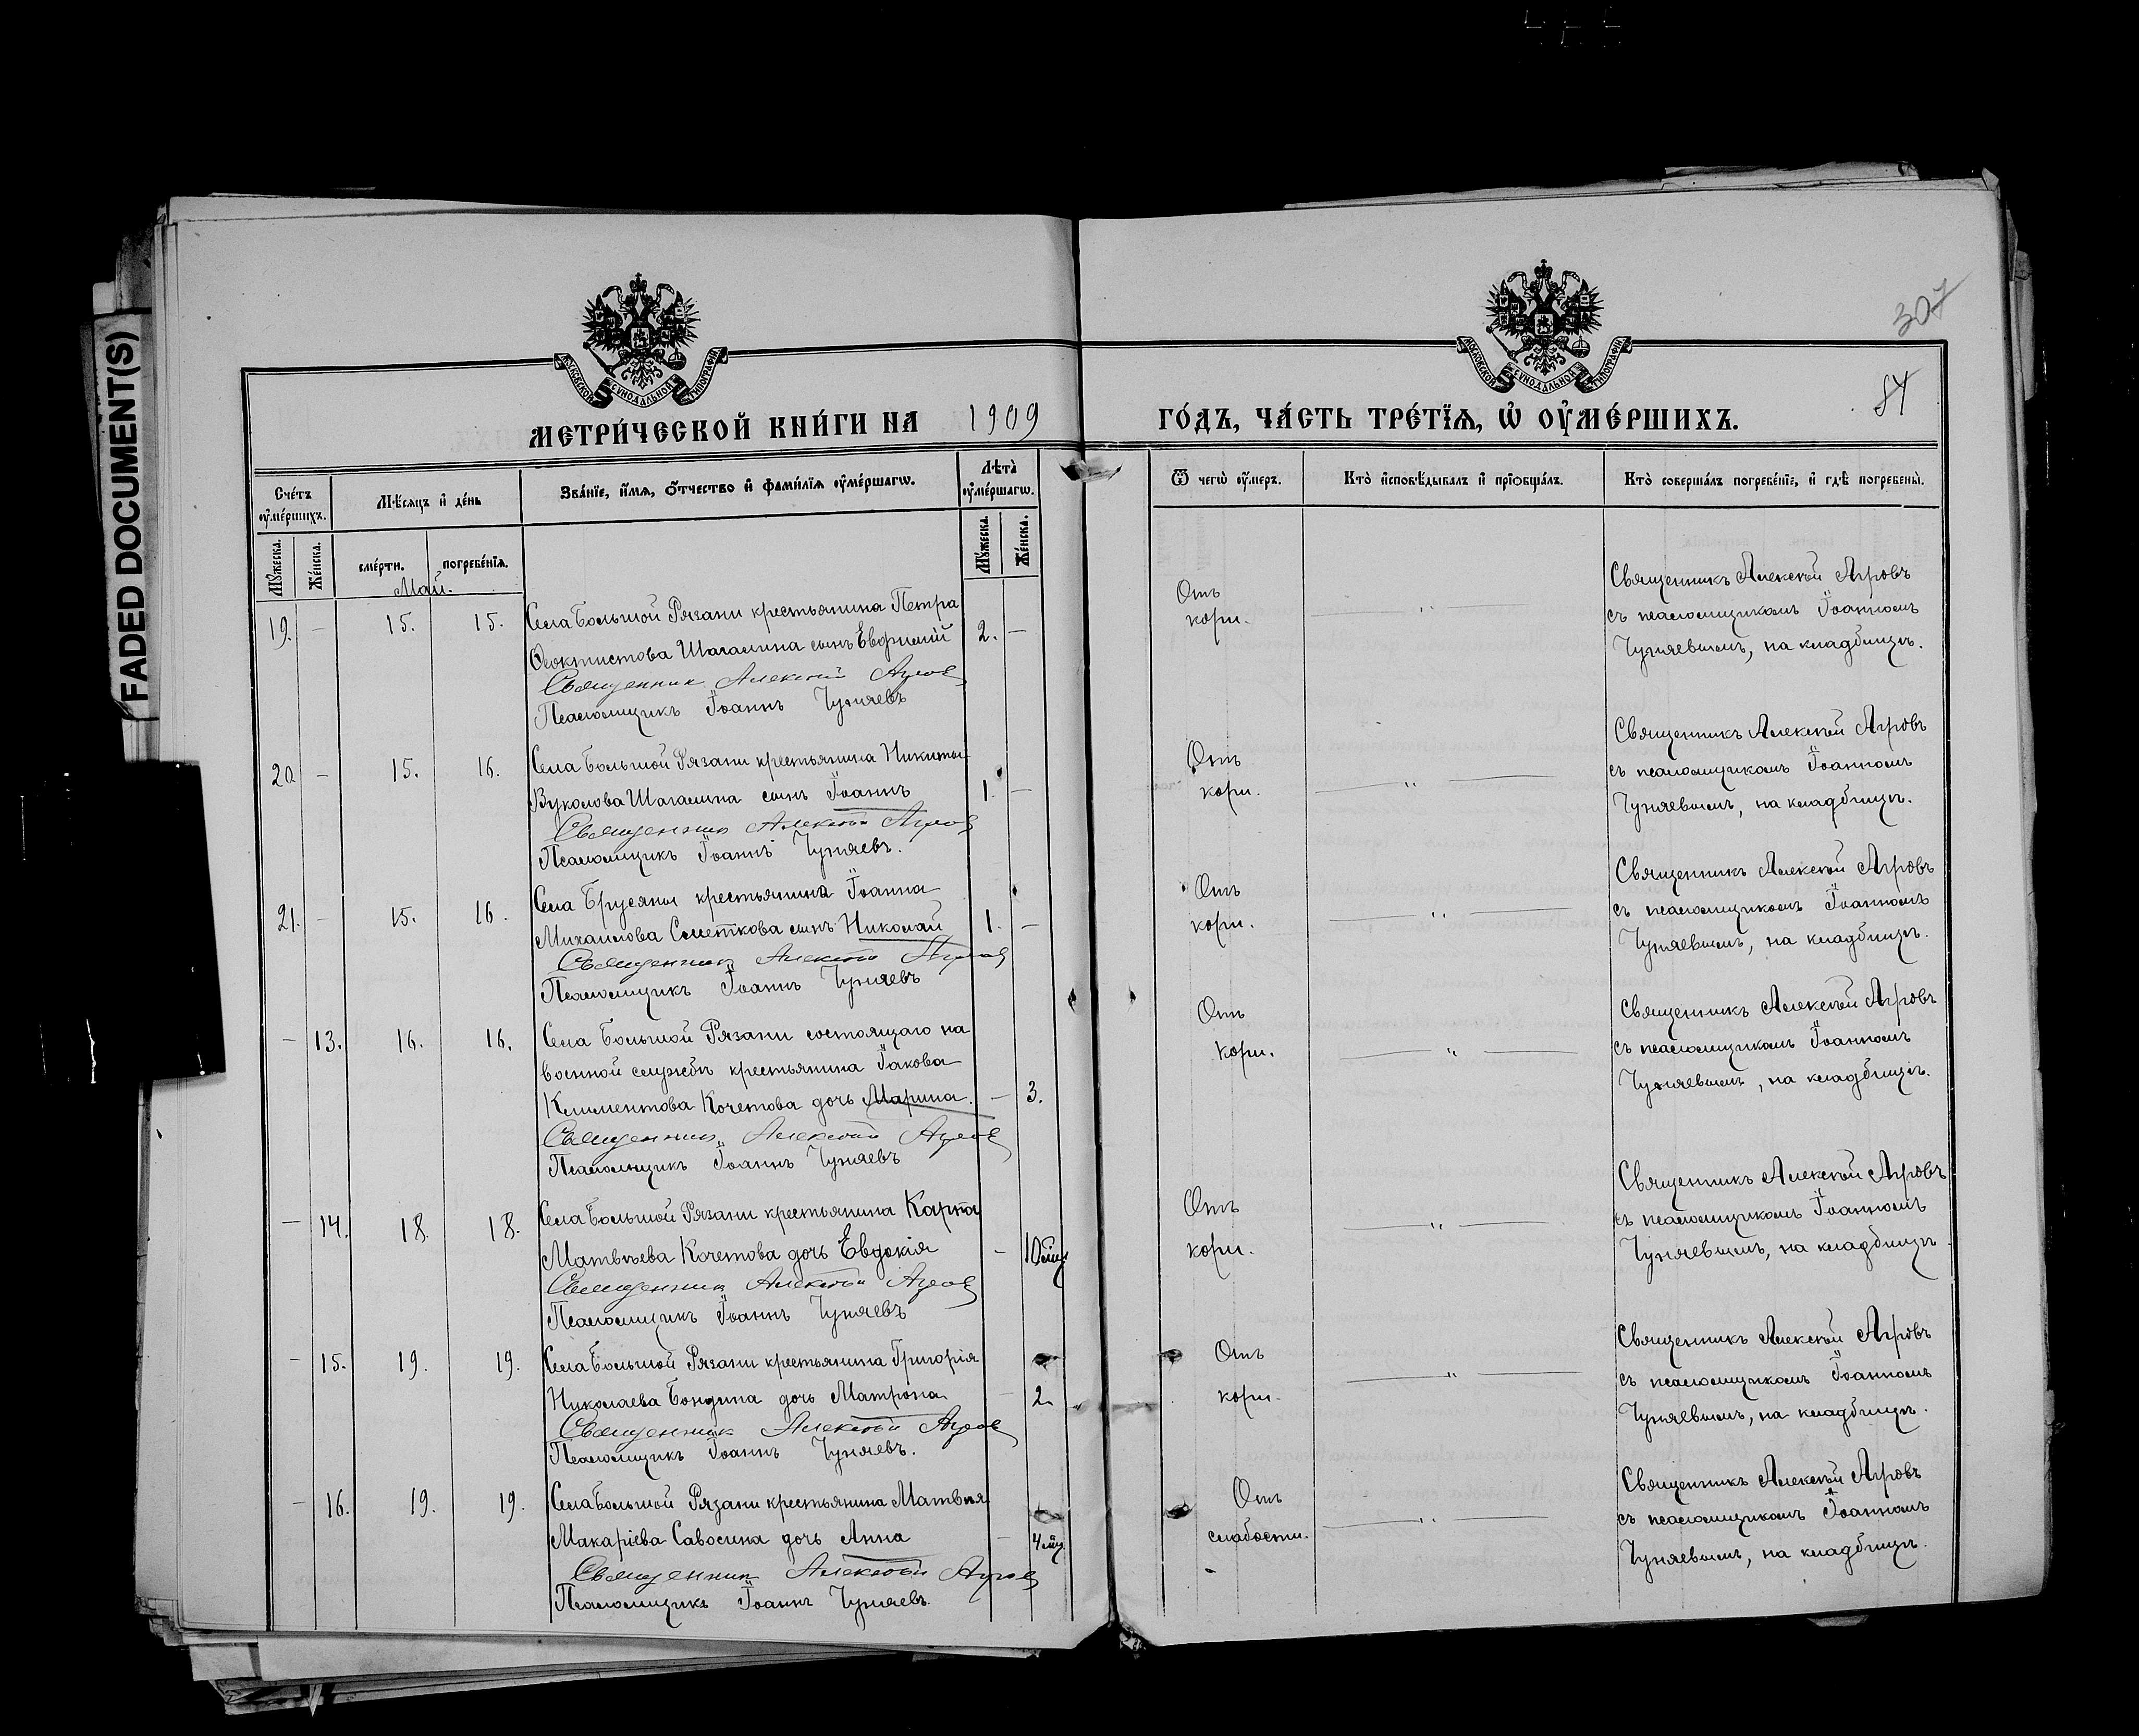 FADED DOCUMENT(S)
307
84
МОСКОВСКОЙ СУНОДАЛЬНОЙ ТИПОГРАФІИ
МОСКОВСКОЙ СУНОДАЛЬНОЙ ТИПОГРАФІИ
МЕТРИ́ЧЕСКОЙ КНИ́ГИ НА 1909 ГО́ДЪ, ЧА́СТЬ ТРЕ́ТЇѦ, Ѡ҆ ОУ҆МЕ́РШИХЪ.
Сче́тъ оу҆ме́ршихъ.
Мѣ́сѧцъ и҆ де́нь
Зва́нїе, и҆́мѧ, о҆́тчество и҆ фами́лїѧ оу҆ме́ршагѡ.
Лѣта̀ оу҆ме́ршагѡ.
Ѿ чегѡ̀ оу҆́меръ.
Кто̀ и҆сповѣ́дывалъ и҆ прїѻбща́лъ.
Кто̀ соверша́лъ погребе́нїе, и҆ гдѣ̀ погребены̀.
Мꙋ́жеска.
Же́нска.
сме́рти.
погребе́нїѧ.
Мꙋ́жеска.
Же́нска.
Май.
19. — 15. 15. Села Большой Рязани крестьянина Петра
Ѳеоктистова Шагалина сынъ Евфимій 2. —
Священникъ Алексѣй Агровъ
Псаломщикъ Іоаннъ Чуняевъ
Отъ
кори.
— " —
Священникъ Алексѣй Агровъ
съ псаломщикомъ Іоанномъ
Чуняевымъ, на кладбищѣ.
20 — 15. 16. Села Большой Рязани крестьянина Никиты
Вуколова Шагалина сынъ Іоаннъ 1. —
Священникъ Алексѣй Агровъ
Псаломщикъ Іоаннъ Чуняевъ.
Отъ
кори.
— " —
Священникъ Алексѣй Агровъ
съ псаломщикомъ Іоанномъ
Чуняевымъ, на кладбищѣ.
21. — 15. 16. Села Брусяны крестьянина Іоанна
Михаилова Сметкова сынъ Николай 1. —
Священникъ Алексѣй Агровъ
Псаломщикъ Іоаннъ Чуняевъ
Отъ
кори.
— " —
Священникъ Алексѣй Агровъ
съ псаломщикомъ Іоанномъ
Чуняевымъ, на кладбищѣ.
— 13. 16. 16. Села Большой Рязани состоящаго на
военной службѣ крестьянина Іакова
Климентова Кочетова дочь Марина. — 3.
Священникъ Алексѣй Агровъ
Псаломщикъ Іоаннъ Чуняевъ
Отъ
кори.
— " —
Священникъ Алексѣй Агровъ
съ псаломщикомъ Іоанномъ
Чуняевымъ, на кладбищѣ.
— 14. 18. 18. Села Большой Рязани крестьянина Карпа
Матвѣева Кочетова дочь Евдокія — 10 мц
Священникъ Алексѣй Агровъ
Псаломщикъ Іоаннъ Чуняевъ
Отъ
кори.
— " —
Священникъ Алексѣй Агровъ
съ псаломщикомъ Іоанномъ
Чуняевымъ, на кладбищѣ.
— 15. 19. 19. Села Большой Рязани крестьянина Григорія
Николаева Бондина дочь Матрона — 2.
Священникъ Алексѣй Агровъ
Псаломщикъ Іоаннъ Чуняевъ.
Отъ
кори.
— " —
Священникъ Алексѣй Агровъ
съ псаломщикомъ Іоанномъ
Чуняевымъ, на кладбищѣ.
— 16. 19. 19. Села Большой Рязани крестьянина Матвѣя
Макаріева Савосина дочь Анна — 4 мц
Священникъ Алексѣй Агровъ
Псаломщикъ Іоаннъ Чуняевъ.
Отъ
слабости.
— " —
Священникъ Алексѣй Агровъ
съ псаломщикомъ Іоанномъ
Чуняевымъ, на кладбищѣ.